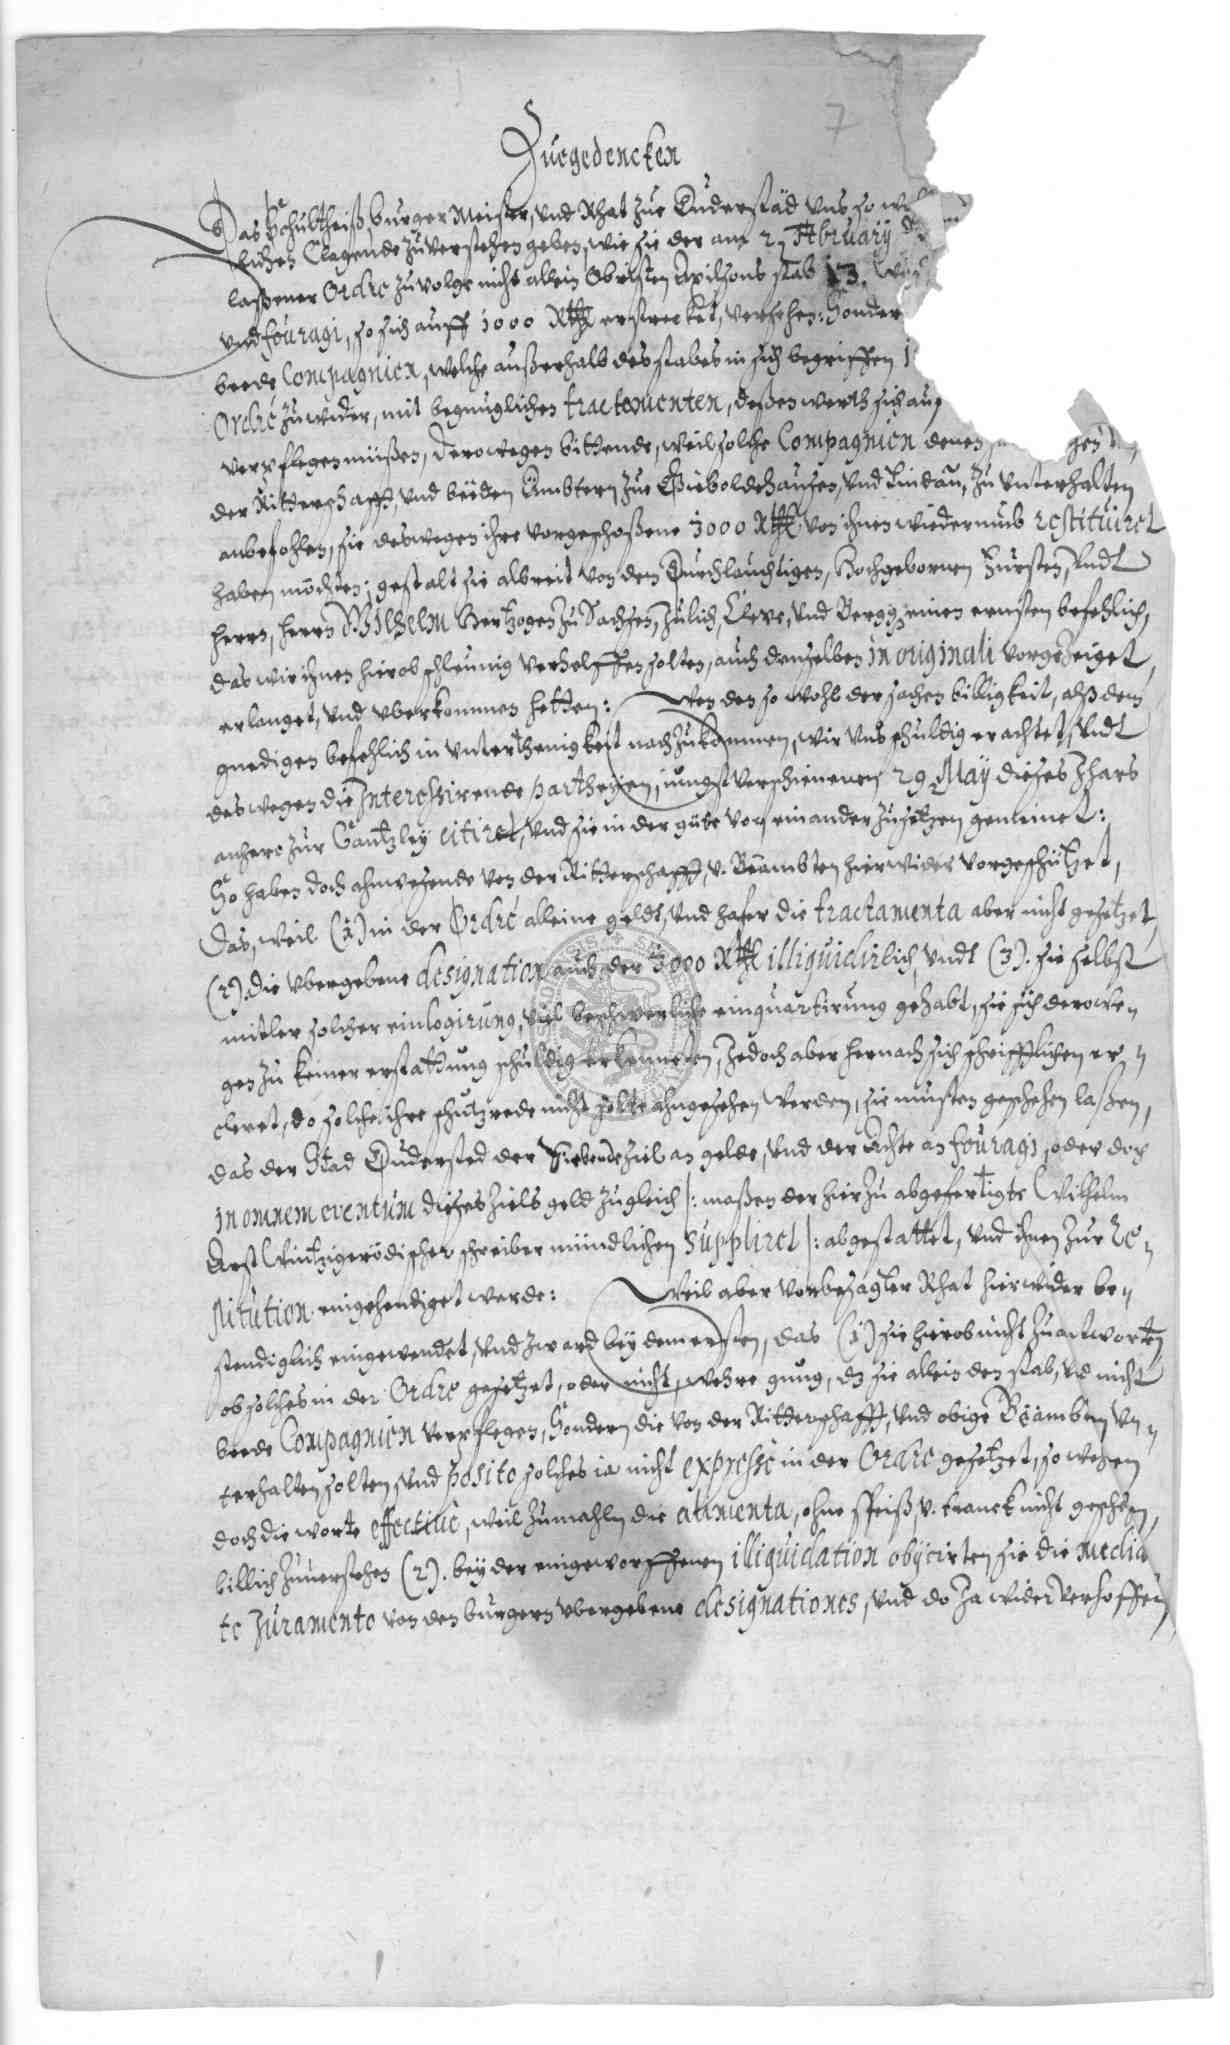 7
Zuegedencken
Das Schultheiß, burger Meister, und Rhat zue Duderstäd uns so
lichen Clagende zuverstehen geben, wie sie der am 2. February
laßener Ordre zuvolge nicht allein Obristen Axilsons stab 13.
und fouragi, so sich auff 1000 Rthlr erstrecket, versehen: Sonder
beede Compagnien, welche außerhalb des stabes in sich begriffen
Ordre zuwider, mit begnuglichen tractementen, deßen werth sich auf
verpflegen müßen, derowegen bittende, weil solche Compagnien denen
der Ritterschafft, und beyden Ämbtern zue Gieboldehausen, und Lindau, zu unterhalten
anbefohlen, sie deswegen ihre vorgeschoßene 3000 Rthlr von ihnen wiederumb restituiret
haben möchten; gestalt sie albereit von dem Durchlauchtigen, Hochgebornen Fürsten, Undt
herrn, herrn Wilhelm Hertzogen zu Sachsen, Jülich, Cleve, und Bergg, einen ernsten befehlich,
das wir ihnen hierob schleunig verhelffen solten, auch denselben in originali vorgezeiget,
erlanget, und uberkommen hetten: Wen den so wohl der sachen billigkeit, alß dem
gnedigen befehlich in unterthenigkeit nachzukommen, wir uns schuldig erachtet, Undt
deswegen die Interessirende partheyen, iungst verschienenen 29 May dieses Jhars
anhero zur Cantzley citiret, und sie in der güte von einander zusetzen gemeinet:
So haben doch ahnwesende von der Ritterschafft, v. Beambten hierwider vorgeschützet,
Das, weil (1) in der Ordre alleine geldt, und hafer die tractamenta aber nicht gesetzet,
(2). die ubergebene designation auch der 3000 Rthlr illiquidirlich, undt (3). sie selbst
mitler solcher einlogirung, viel beschwerliche einquartirung gehabt, sie sich derowe„
gen zu keiner erstattung schuldig erkenneten, Jedoch aber hernach sich schrifftlichen er„
cleret, do solche ihre schutzrede nicht solte ahngesehen werden, sie musten geschehen laßen,
das der Stad Duderstad der Siebende ziel an gelde, und der Achte an fouragi, oder doch
in omnem eventum dieses Ziels geld zugleich |: maßen der hierzu abgefertigte Wilhelm
Arst Wintzigerödischer schreiber mündlichen suppliret :| abgestattet, und ihnen zur Re„
stitution eingehendiget werde: Weil aber vorbesagter Rhat hierwider be„
stendiglich eingewendet, und zward bey dem ersten, das (1) sie hierob nicht zuantworten
ob solches in der Ordre gesetzet, oder nicht, wehre gnug, dz sie allein den stab, vd nicht
beede Compagnien verpflegen, Sondern die von der Ritterschafft, und obige Beambten un„
terhalten solten, und posito solches ia nicht expresse in der Ordre gesetzet, so wehren
doch die worte effective, weil zumahln die alimenta, ohne speiß v. tranck nicht geschehen,
billich zuverstehen (2). bey der eingeworffenen illiquidation obijcirten sie die media
te Juramento von den burgern ubergebene designationes, und do Ja wider verhoffen